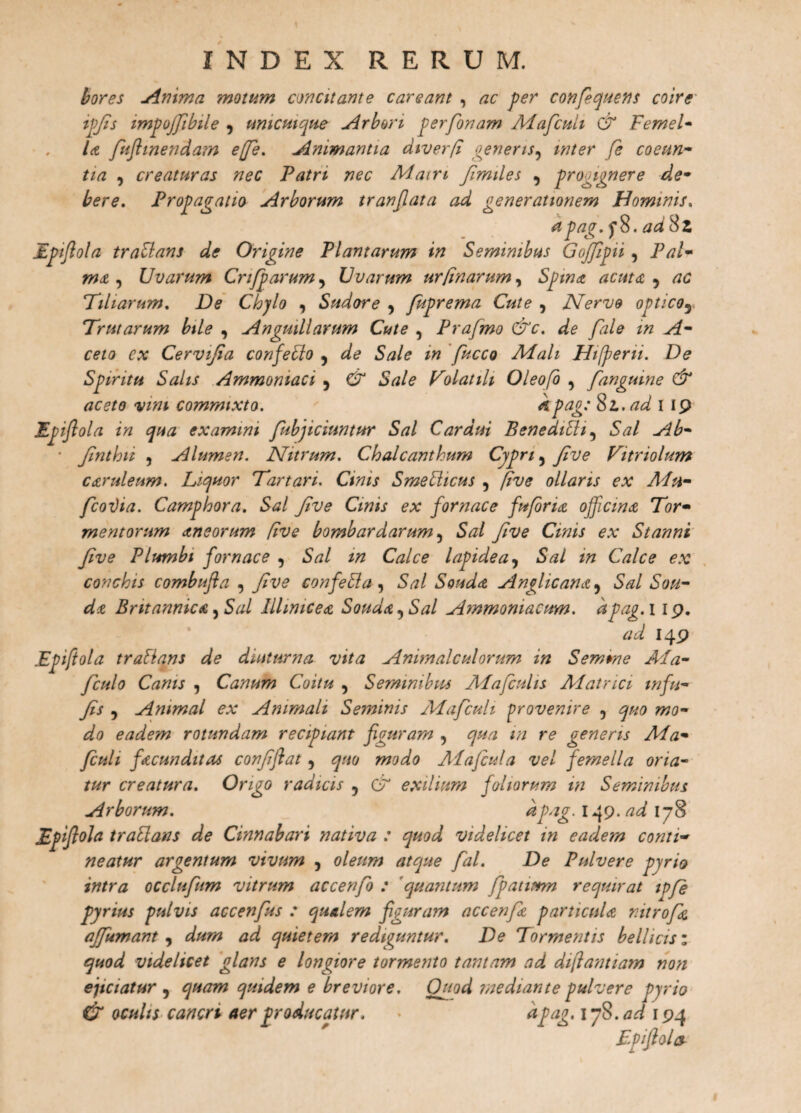 INDEX RERUM.
bores Anima motum concitante careant, ac per consequens coire
ipsis impossibile, unicuique Arbori personam Masculi & Femel-
læ sustinendam esse. Animantia diversi generis, inter se coeun-
tia, creaturas nec Patri nec Matri similes, progignere de-
bere. Propagatio Arborum translata ad generationem Hominis.
à pag. 58. ad 82
Epistola tractans de Origine Plantarum in Seminibus Gossipii, Pal-
mæ, Uvarum Crisparum, Uvarum ursinarum, Spinæ acutæ, ac
Tiliarum. De Chylo, Sudore, suprema Cute, Nervo optico,
Trutarum bile, Anguillarum Cute, Prasmo &c. de sale in A-
ceto ex Cervisia confecto, de Sale in succo Mali Hisperii. De
Spiritu Salis Ammoniaci, & Sale Volatili Oleoso, sanguine &
aceto vini commixto. à pag: 82. ad 119
Epistola in qua examini subjiciuntur Sal Cardui Benedicti, Sal Ab-
sinthii, Alumen. Nitrum. Chalcanthum Cypri, sive Vitriolum
cæruleum. Liquor Tartari. Cinis Smecticus, sive ollaris ex Mu-
scovia. Camphora. Sal sive Cinis ex fornace fusoriæ officinæ Tor-
mentorum æneorum sive bombardarum, Sal sive Cinis ex Stanni
sive Plumbi fornace, Sal in Calce lapidea, Sal in Calce ex
conchis combusta, sive confecta, Sal Soudæ Anglicanæ, Sal Sou-
dæ Britannicæ, Sal Illiniceæ Soudæ, Sal Ammoniacum. à pag. 119.
ad 149
Epistola tractans de diuturna vita Animalculorum in Semine Ma-
sculo Canis, Canum Coitu, Seminibus Masculis Matrici infu-
sis, Animal ex Animali Seminis Masculi provenire, quo mo-
do eadem rotundam recipiant figuram, qua in re generis Ma-
sculi fæcunditas consistat, quo modo Mascula vel femella oria-
tur creatura. Origo radicis, & exilium foliorum in Seminibus
Arborum. à pag. 149. ad 178
Epistola tractans de Cinnabari nativa: quod videlicet in eadem conti-
neatur argentum vivum, oleum atque sal. De Pulvere pyrio
intra occlusum vitrum accenso: quantum spatium requirat ipse
pyrius pulvis accensus: qualem figuram accensæ particulæ nitrosæ
assumant, dum ad quietem rediguntur. De Tormentis bellicis:
quod videlicet glans e longiore tormento tantam ad distantiam non
ejiciatur, quam quidem e breviore. Quod mediante pulvere pyrio
& oculis cancri aer producatur. à pag. 178. ad 194
Epistola